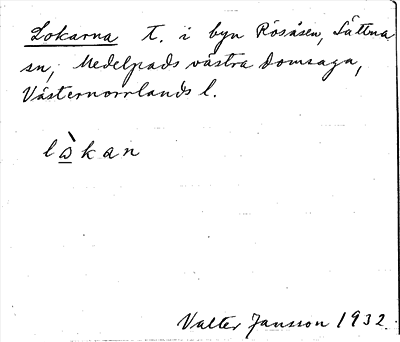 Lokarna t. i byn Rösåsen, Sättna
sn, Medelpads västra domsaga,
Västernorrlands l.
lòkan
Valter Jansson 1932.